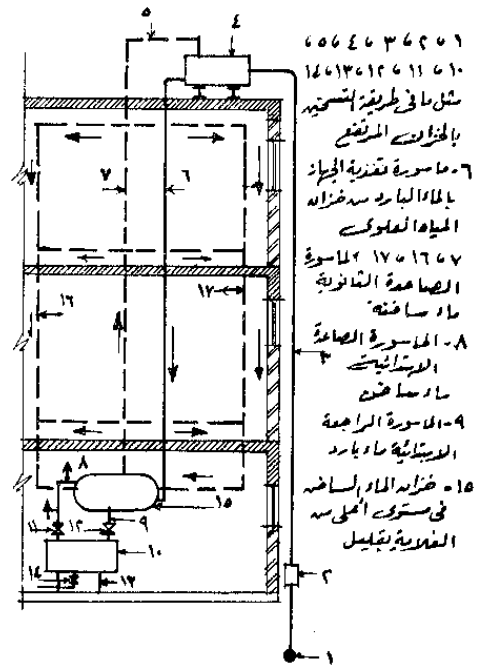 ١ ، ٢ ، ٣ ، ٤ ، ٥ ،
١٠ ، ١١ ، ١٢ ، ١٣ ، ١٤
مثل ما فى طريقة التسخين
بالخزان المرتفع
٦- ماسورة تغذية الجهاز
بالماء البارد من خزان
المياه العلوى
٧ ، ١٦ ، ١٧ الماسورة
الصاعدة الثانوية
ماء ساخنة
٨- الماسورة الصاعدة
الابتدائية
ماء ساخن
٩- الماسورة الراجعة
الابتدائية ماء بارد
١٥- خزان الماء الساخن
فى مستوى أعلى من
الغلاية بقليل
٥
٤
٧
٦
١٦
١٧
٣
٨
١٥
٩
١١
١٢
١٠
١٤
١٣
٢
١